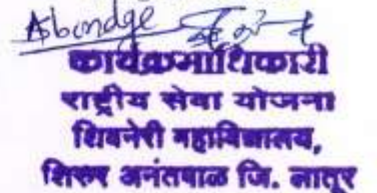 Abondge
कार्यक्रमाधिकारी
राष्ट्रीय सेवा योजना
शिवनेरी महाविद्यालय,
शिरुर अनंतपाळ जि. लातूर